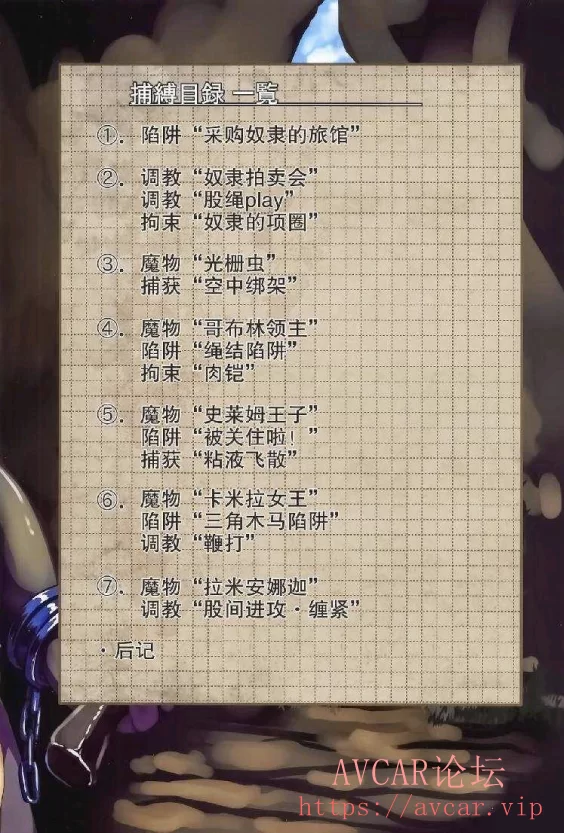 捕縛目録 一覧
①. 陷阱 “采购奴隶的旅馆”
②. 调教 “奴隶拍卖会”
调教 “股绳play”
拘束 “奴隶的项圈”
③. 魔物 “光栅虫”
捕获 “空中绑架”
④. 魔物 “哥布林领主”
陷阱 “绳结陷阱”
拘束 “肉铠”
⑤. 魔物 “史莱姆王子”
陷阱 “被关住啦！”
捕获 “粘液飞散”
⑥. 魔物 “卡米拉女王”
陷阱 “三角木马陷阱”
调教 “鞭打”
⑦. 魔物 “拉米安娜迦”
调教 “股间进攻·缠紧”
·后记
AVCAR论坛
https://avcar.vip